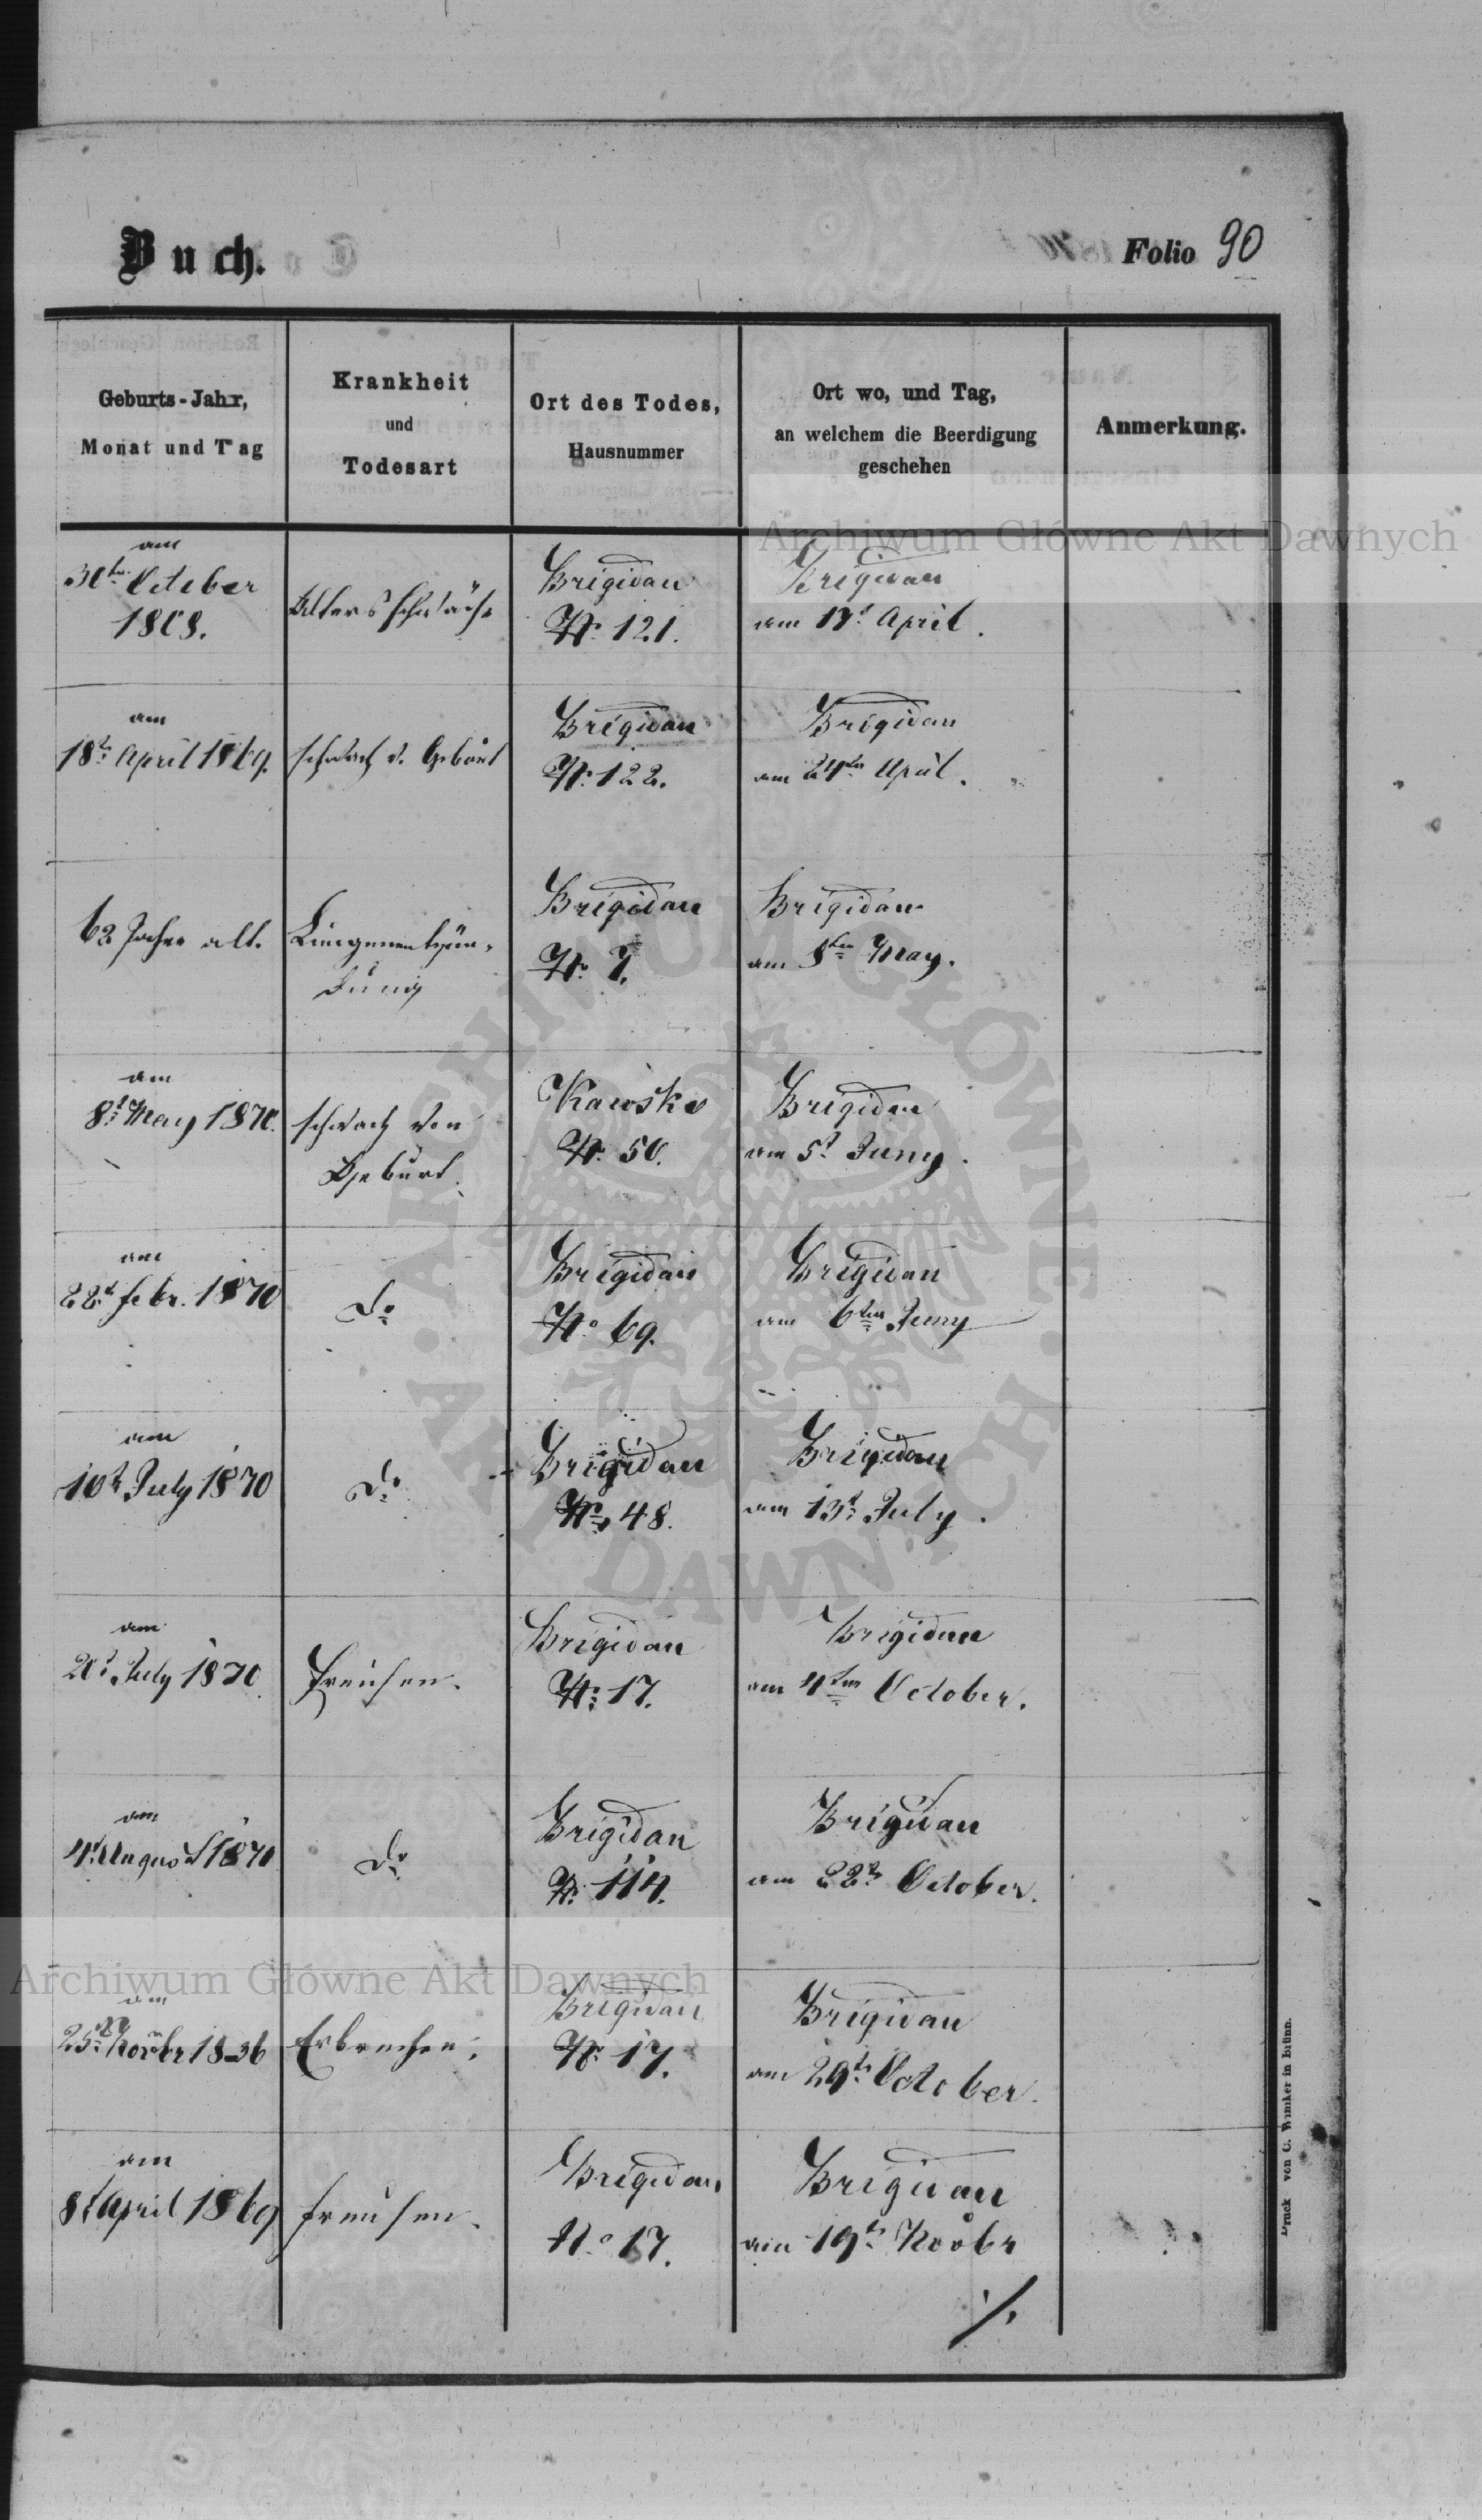 Buch.
Folio 90
Geburts-Jahr,
Monat und Tag
Krankheit
und
Todesart
Ort des Todes,
Hausnummer
Ort wo, und Tag,
an welchem die Beerdigung
geschehen
Anmerkung.
Archiwum Główne Akt Dawnych
am
30ten October
1808.
Altersschwäche
Brigidau
No 121.
Brigidau
am 17t April.
am
18t April 1869.
schwach v. Gebúrt
Brigidau
No 122.
Brigidau
am 24ten April.
62 Jahre alt.
Lungenentzün-
dung
Brigidau
No 7.
Brigidau
am 8ten May.
am
8t May 1870.
schwach von
Geburt.
Kawsko
No 50.
Brigidau
am 5t Juny.
am
22t febr. 1870
do
Brigidau
No 69.
Brigidau
am 6ten Juny
am
10t July 1870
do
Brigidau
No 48.
Brigidau
am 13t July.
am
20t July 1870.
Freisen.
Brigidau
No 17.
Brigidau
am 4ten October.
am
4t August 1870
do
Brigidau
No 114.
Brigidau
am 22t October.
Archiwum Główne Akt Dawnych
am
25t Novbr 1836
Erbrechen.
Brigidau
No 17.
Brigidau
am 29t October.
am
8t April 1869
freisen.
Brigidau
No 17.
Brigidau
am 19t Novbr
./.
Druck von C. Winiker in Brünn.
ARCHIWUM GŁÓWNE AKT DAWNYCH